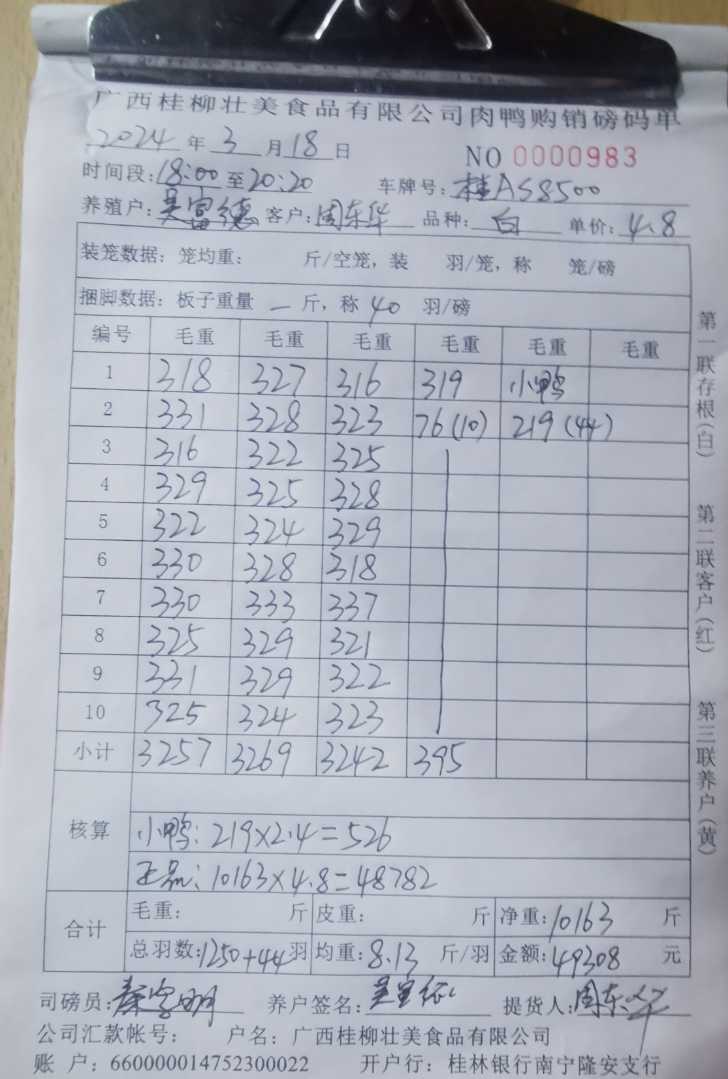 广西桂柳壮美食品有限公司肉鸭购销磅码单
2024 年 3 月 18 日 NO 0000983
时间段: 18:00 至 20:20 车牌号: 桂AS8500
养殖户: 吴富德 客户: 周东华 品种: 白 单价: 4.8
装笼数据: 笼均重: 斤/空笼, 装 羽/笼, 称 笼/磅
捆脚数据: 板子重量 — 斤, 称 40 羽/磅
编号 毛重 毛重 毛重 毛重 毛重 毛重
1 318 327 316 319 小鸭
2 331 328 323 76(10) 219(44)
3 316 322 325
4 329 325 328
5 322 324 329
6 330 328 318
7 330 333 337
8 325 329 321
9 331 329 322
10 325 324 323
小计 3257 3269 3242 395
核算
小鸭: 219×2.4=526
正品: 10163×4.8=48782
合计
毛重: 斤 皮重: 斤 净重: 10163 斤
总羽数: 1250+44 羽 均重: 8.13 斤/羽 金额: 49308 元
司磅员: 养户签名: 提货人: 周东华
公司汇款帐号: 户名: 广西桂柳壮美食品有限公司
账 户: 660000014752300022 开户行: 桂林银行南宁隆安支行
第一联存根(白) 第二联客户(红) 第三联养户(黄)